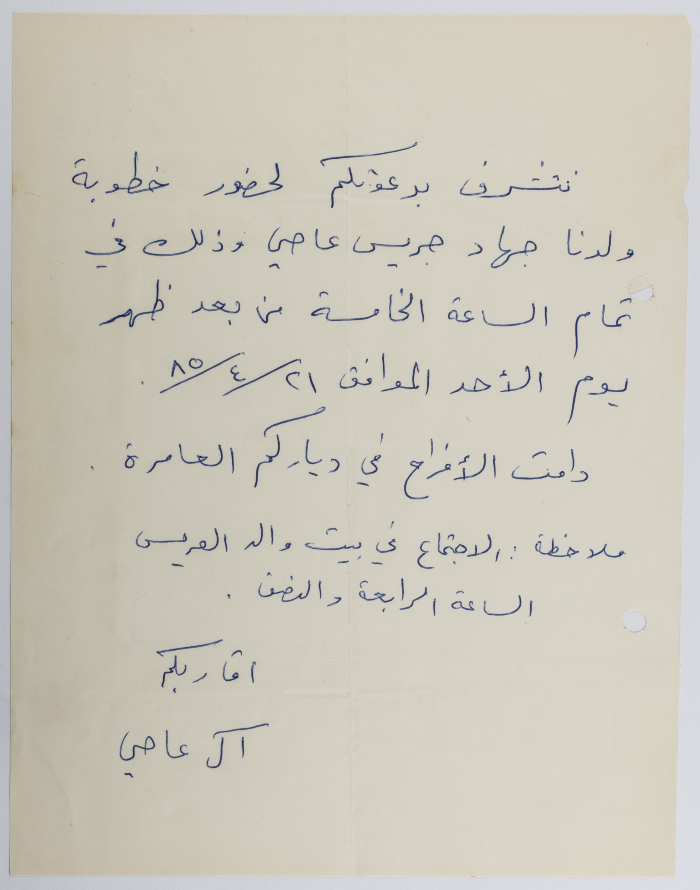 نتشرف بدعوتكم لحضور خطوبة
ولدنا جهاد جريس عاصي وذلك في
تمام الساعة الخامسة من بعد ظهر
يوم الأحد الموافق ٢١/٤/٨٥ .
دامت الأفراح في دياركم العامرة .
ملاحظة : الاجتماع في بيت والد العريس
الساعة الرابعة والنصف .
اقاربكم
آل عاصي